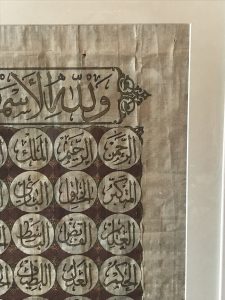 ولله الأسم
الرحمن الرحيم الملك
المتكبر الخالق البارئ
العليم القابض الباسط
الحكم العدل اللطيف